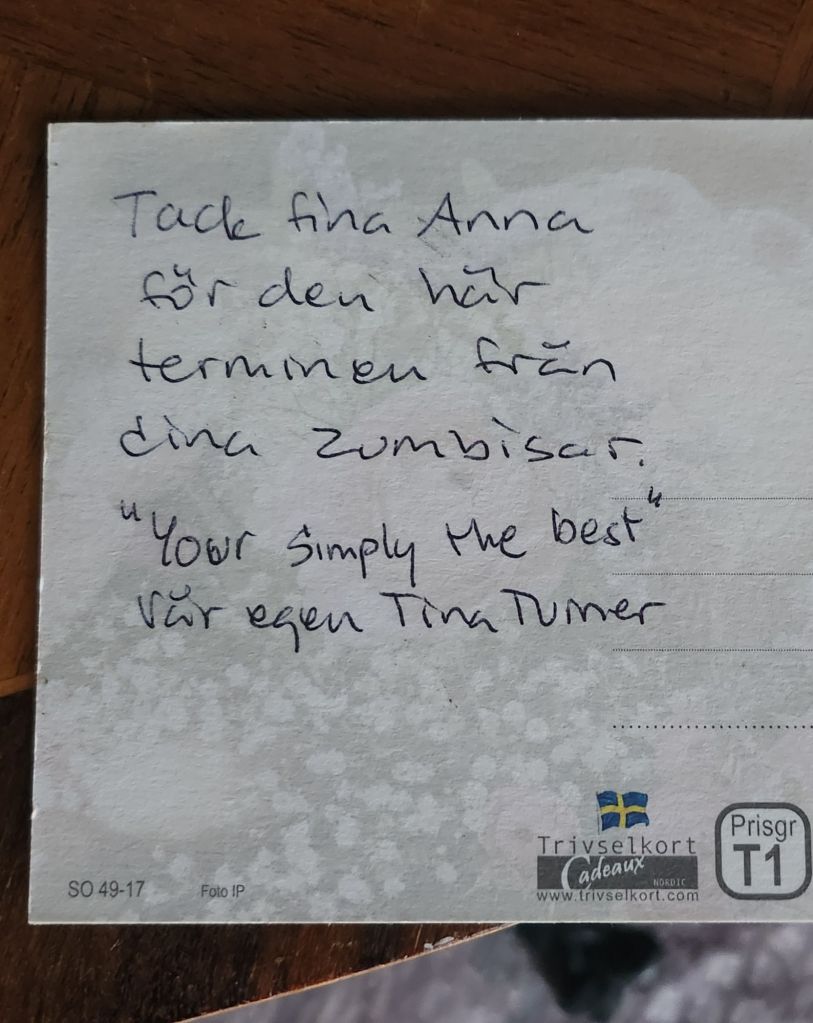 Tack fina Anna
för den här
terminen från
dina zumbisar.
"Your simply the best"
Vår egen Tina Turner
Trivselkort
Cadeaux
NORDIC
www.trivselkort.com
Prisgr
T1
SO 49-17
Foto IP